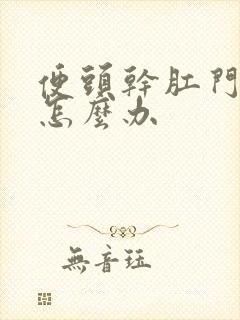 便頭幹肛門
怎麼办
無音珏